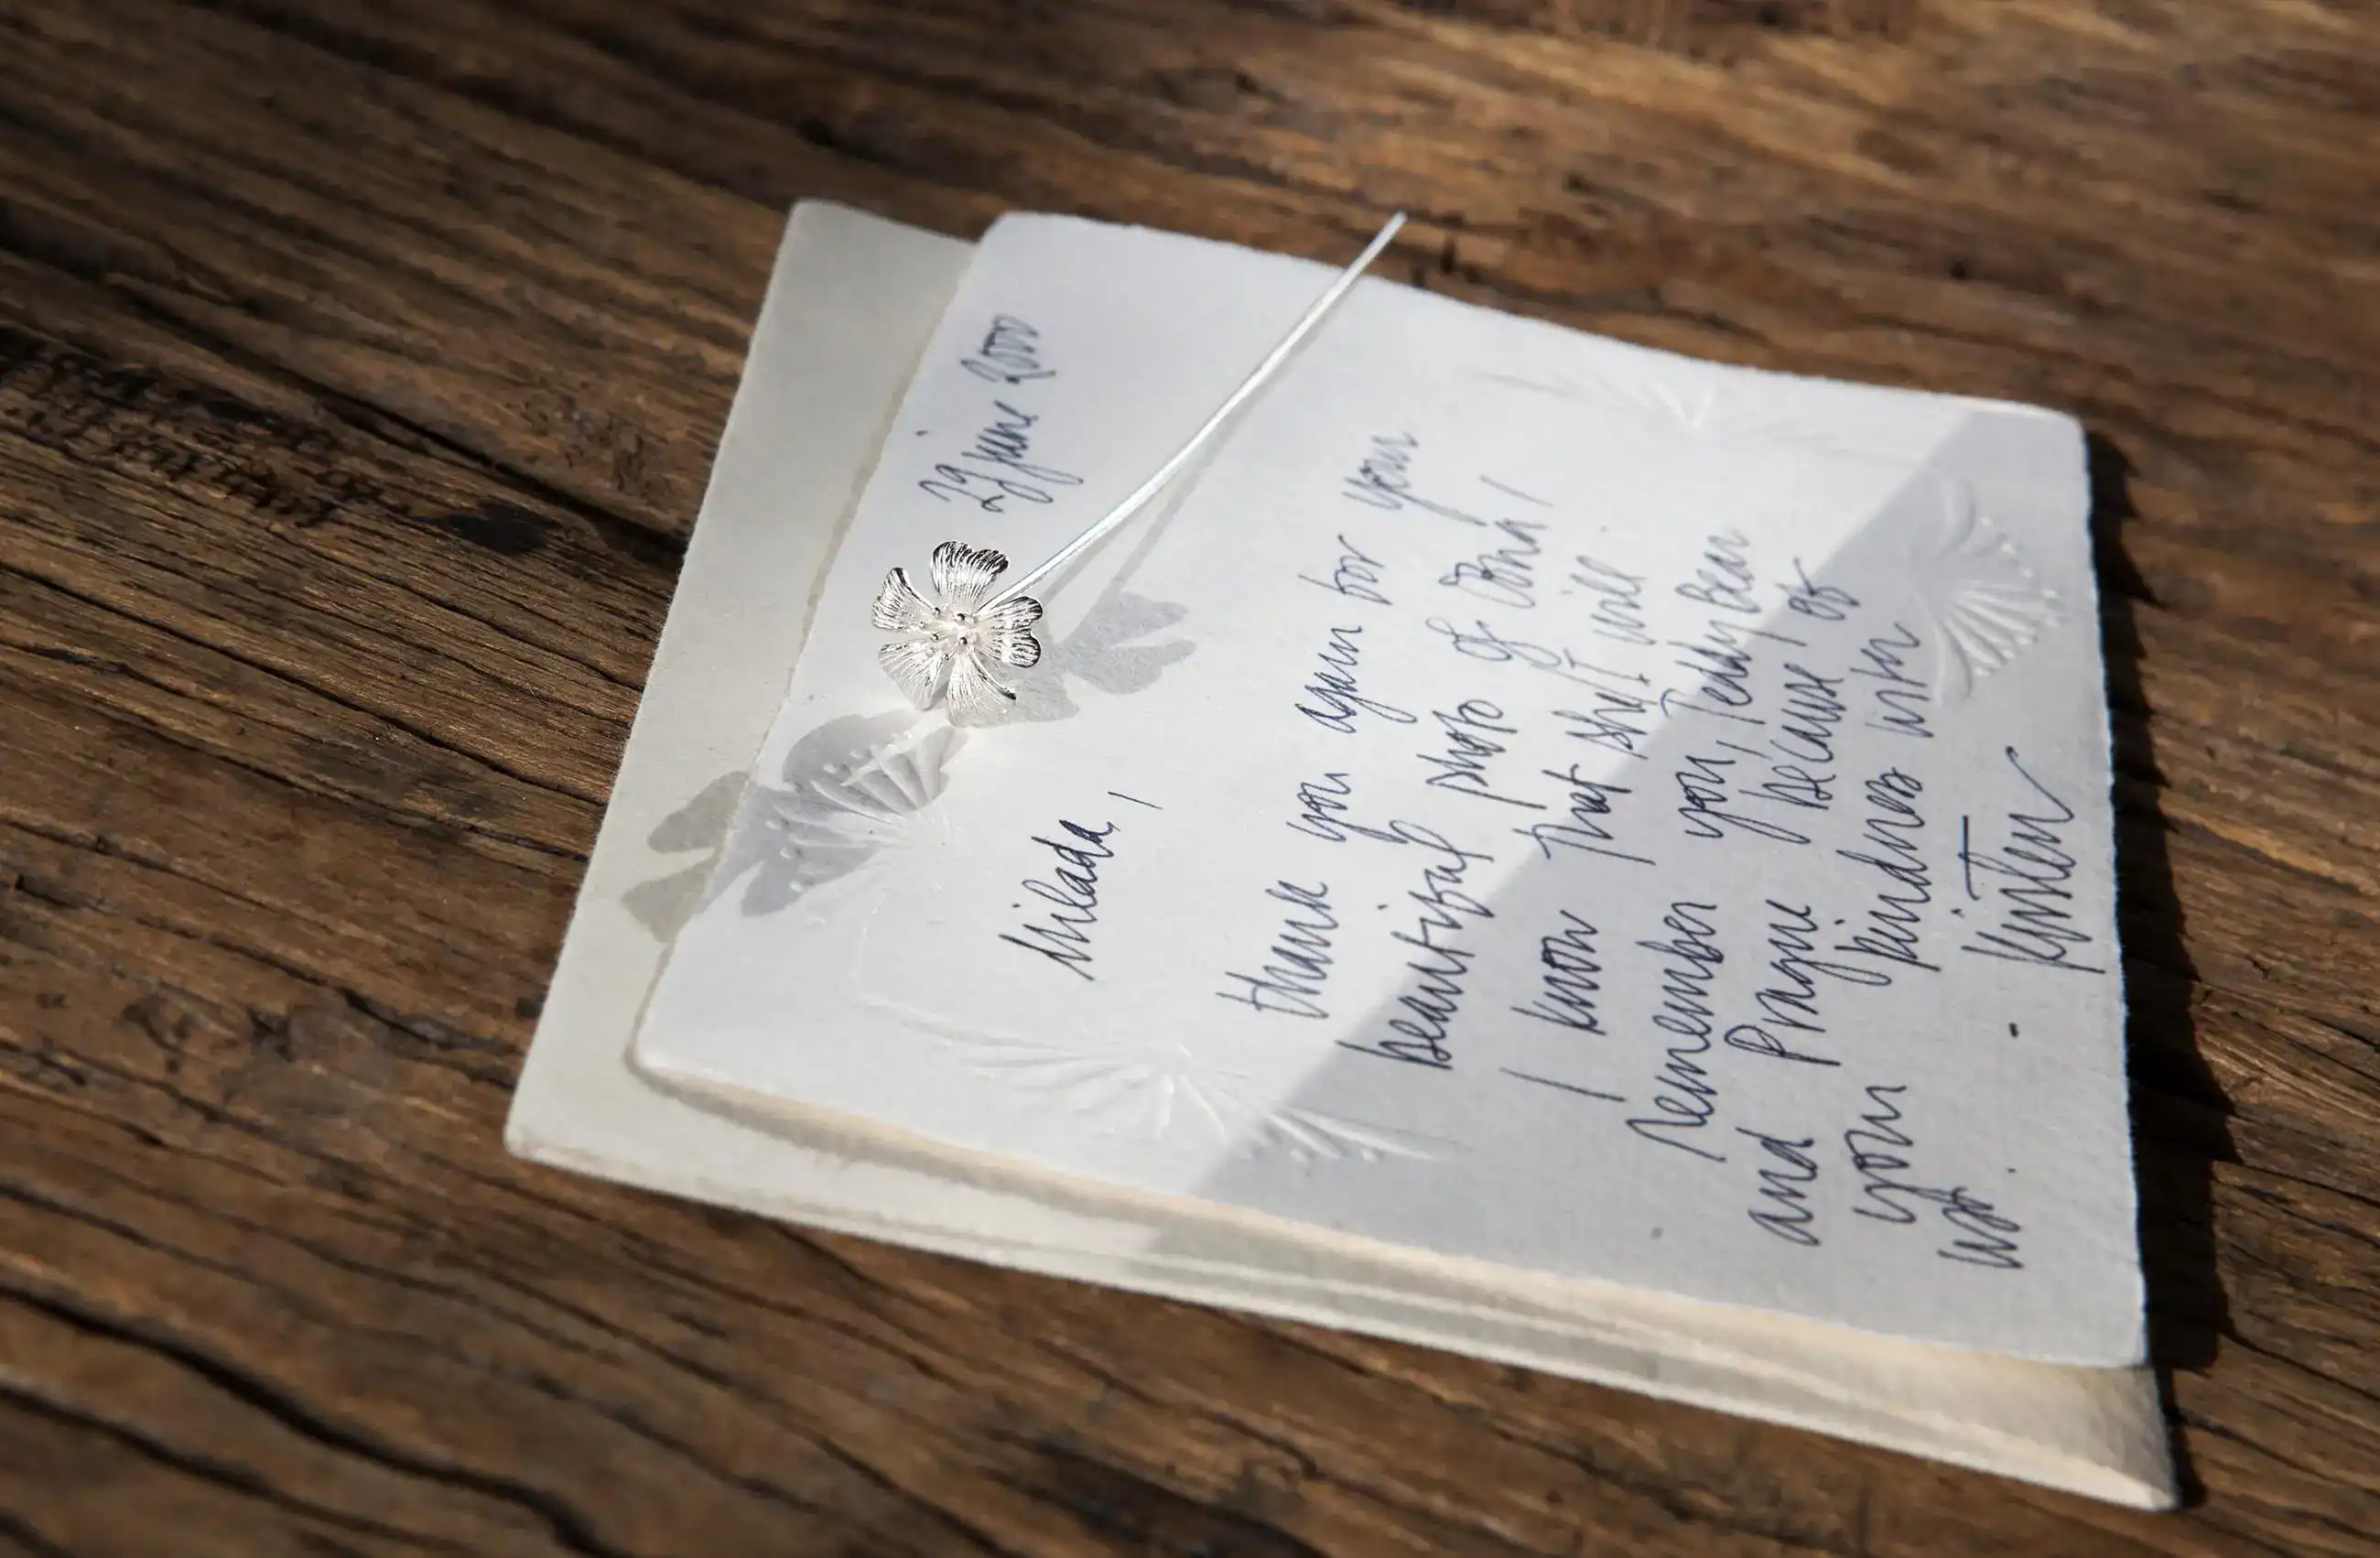 29 June 2000
Milada,
Thank you again for your
beautiful photo of
I know that she will
remember you, Teddy Bear
and Prague because of
your kindness with
us.
Kirsten